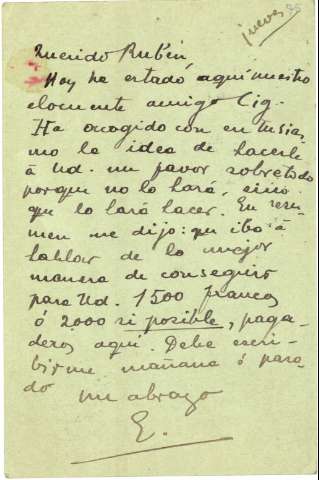 jueves
25
Querido Rubén,
Hoy ha estado aquí nuestro
elocuente amigo Cig.
Ha acogido con entusias-
mo la idea de hacerle
á Ud. un favor sobretodo
porque no lo hará, sino
que lo hará hacer. En resu-
men me dijo: que iba á
hablar de la mejor
manera de conseguir
para Ud. 1500 francos
ó 2000 si posible, paga-
deros aquí. Debe escri-
birme mañana ó pasa-
do
un abrazo
E.